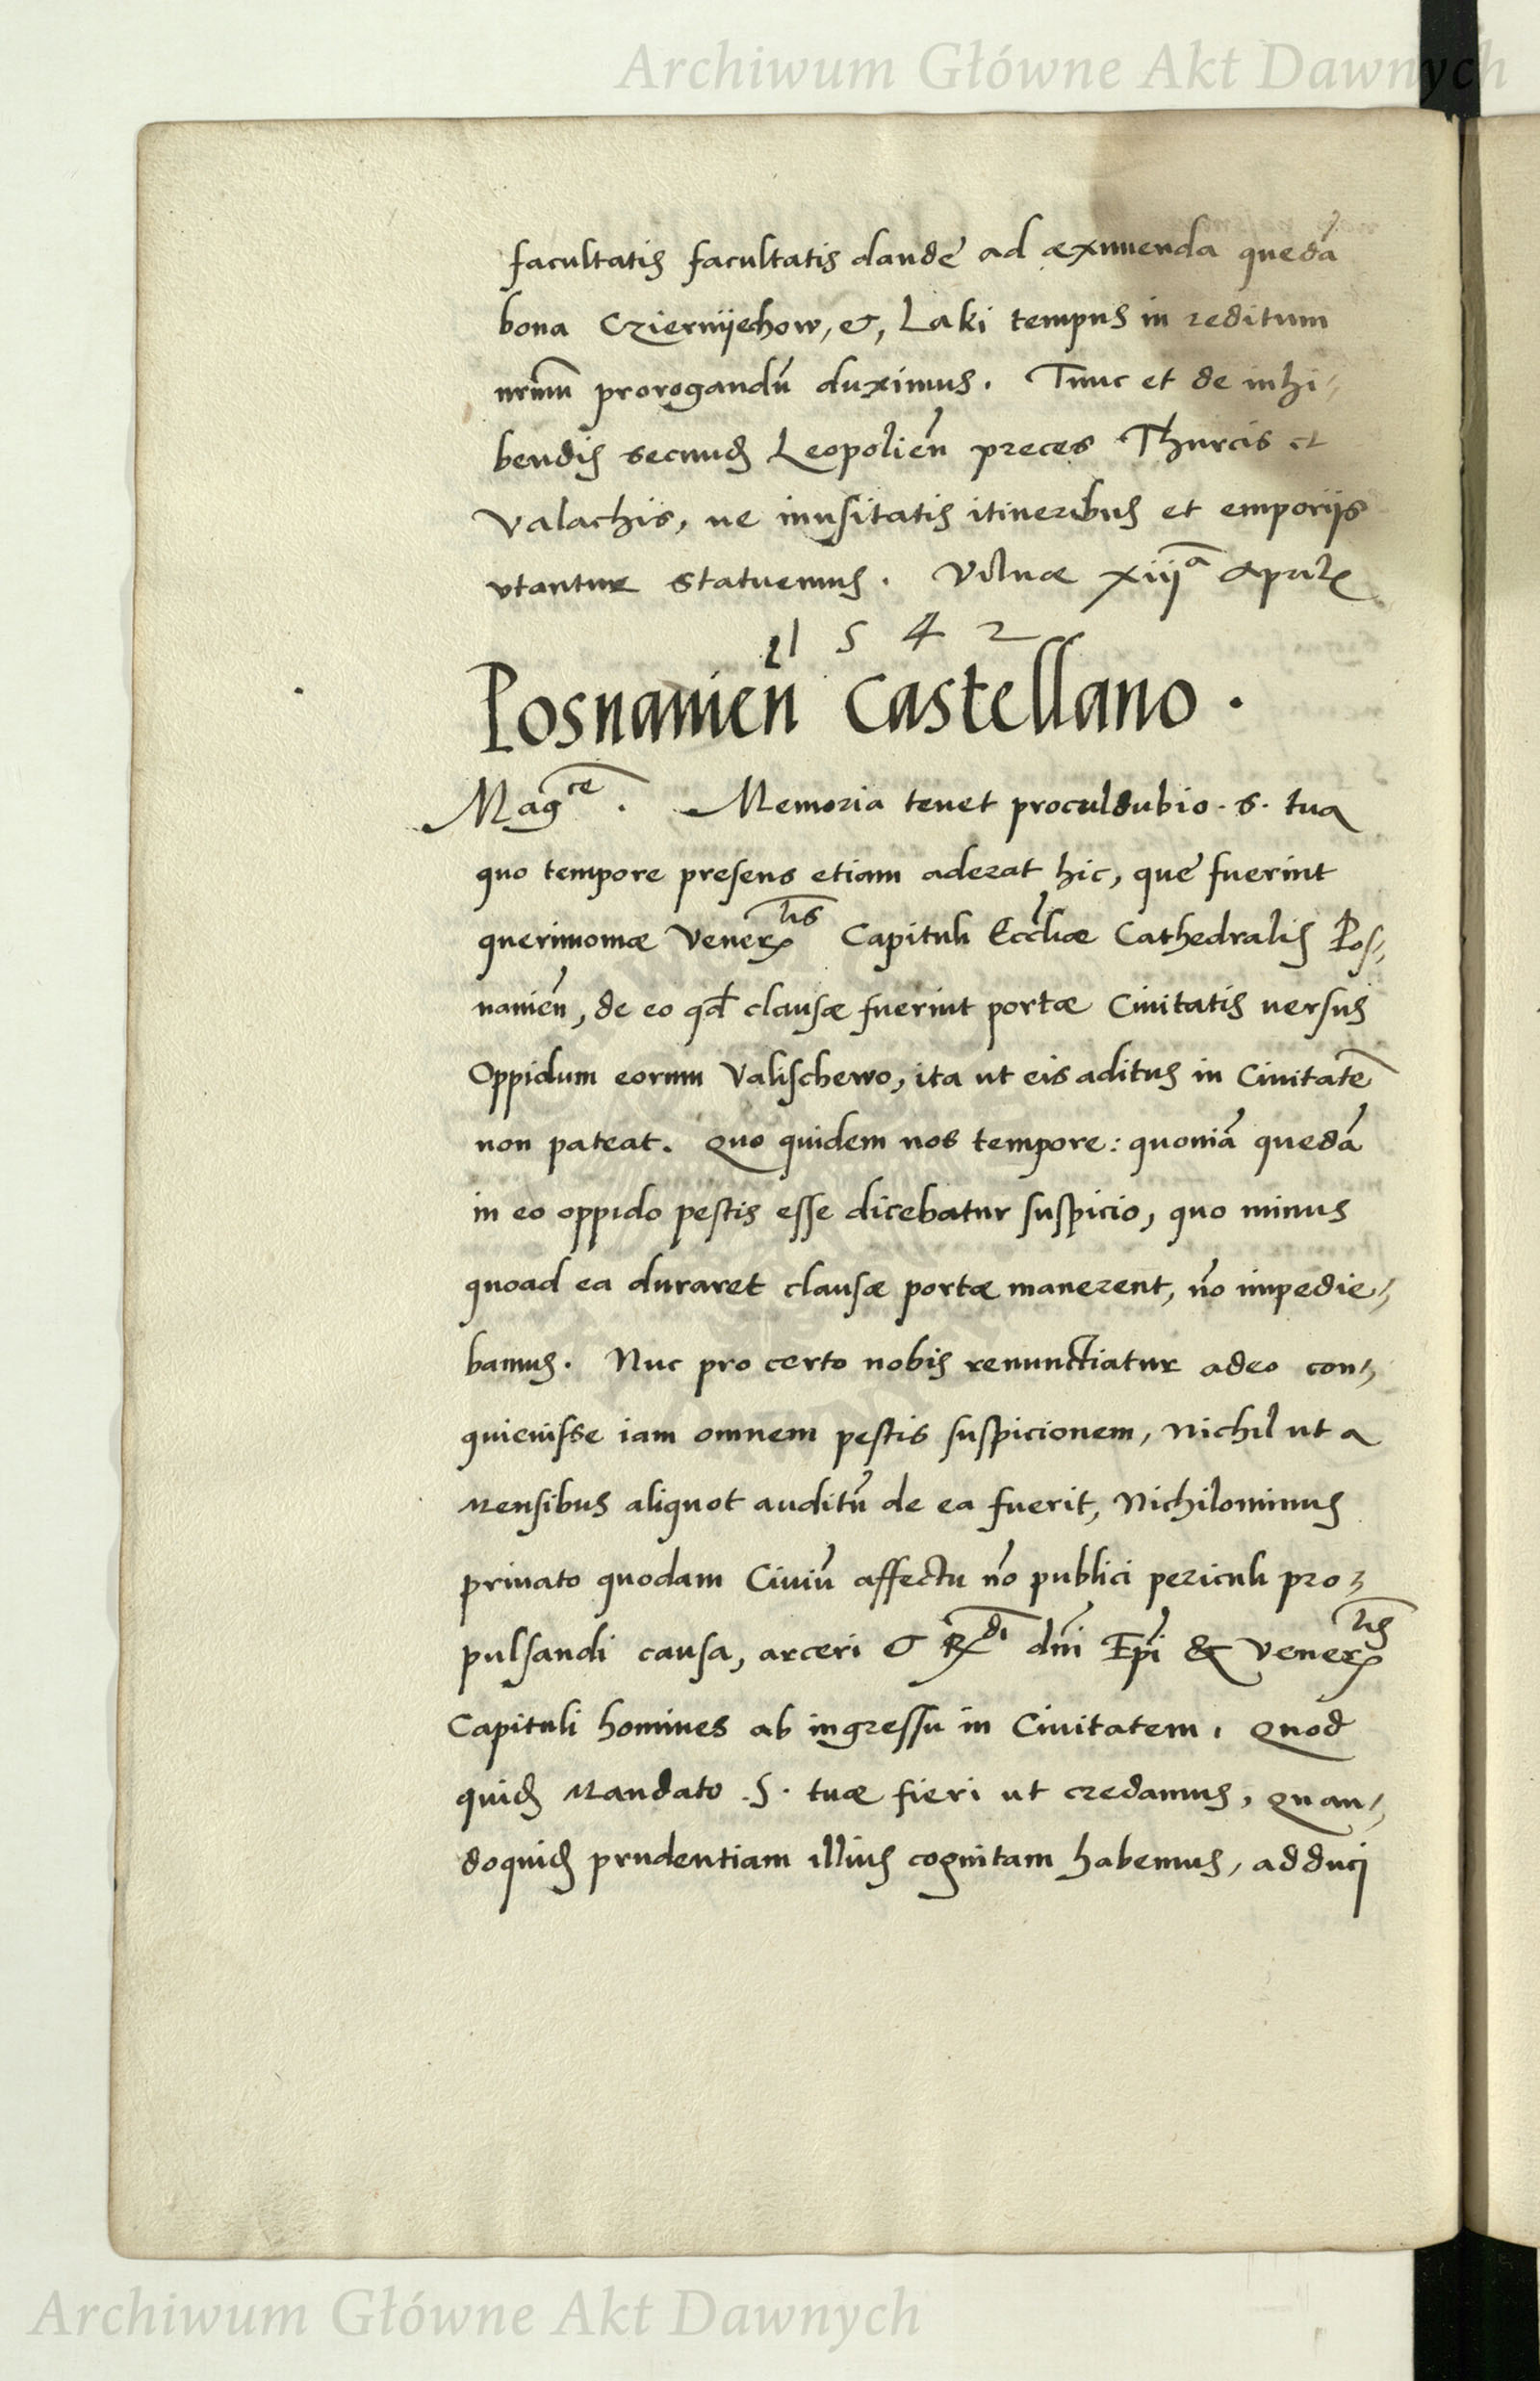 Archiwum Główne Akt Dawnych
facultatis facultatis dandę ad æximenda quedã
bona Cziernijechow, &, Laki tempus in reditum
nrũm prorogandũ duximus. Tunc et de inhi-
bendis secund̃ Leopolieñ preces Thurcis et
Valachis, ne inusitatis itineribus et emporijs
vtantur statuemus. Vilnæ xiijª Aprilꝭ
1 5 4 2
Posnanieñ Castellano.
Magᶜᵉ. Memoria tenet proculdubio. S. tua
quo tempore presens etiam aderat hic, quę fuerint
querimoniæ Venerˡⁱˢ Capituli Eccl̃iæ Cathedralis Pos-
nanieñ, de eo qđ clausæ fuerint portæ Ciuitatis uersus
Oppidum eorum Valischewo, ita ut eis aditus in Ciuitatẽ
non pateat. Quo quidem nos tempore: quoniã quedã
in eo oppido pestis esse dicebatur suspicio, quo minus
quoad ea duraret clausæ portæ manerent, nõ impedie-
bamus. Nuc pro certo nobis renunctiatur adeo con-
quieuisse iam omnem pestis suspicionem, Nichil ut a
Mensibus aliquot auditũ de ea fuerit, Nichilominus
priuato quodam Ciuiũ affectu nõ publici periculi pro-
pulsandi causa, arceri & Rᵈⁱ dñi Ep̃i & Venerˡⁱˢ
Capituli homines ab ingressu in Ciuitatem. Quod
quid̃ Mandato .S. tuæ fieri ut credamus, Quan-
doquid̃ prudentiam illius cognitam habemus, adduci
Archiwum Główne Akt Dawnych